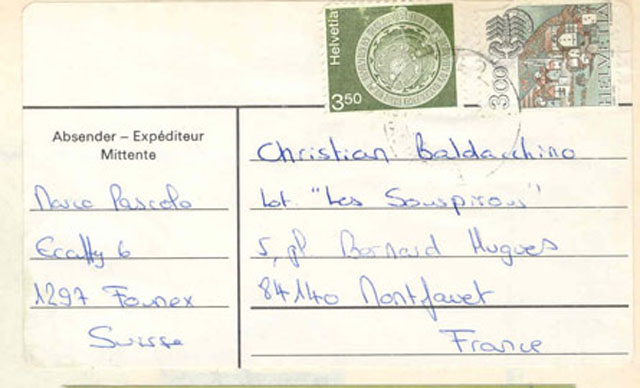 Helvetia
3.50
3.00
HELVETIA
Absender – Expéditeur
Mittente
Marco Pascolo
Ecaffy 6
1297 Founex
Suisse
Christian Baldacchino
Lot. "Les Souspirous"
5, pl. Bernard Hugues
84140 Montfavet
France